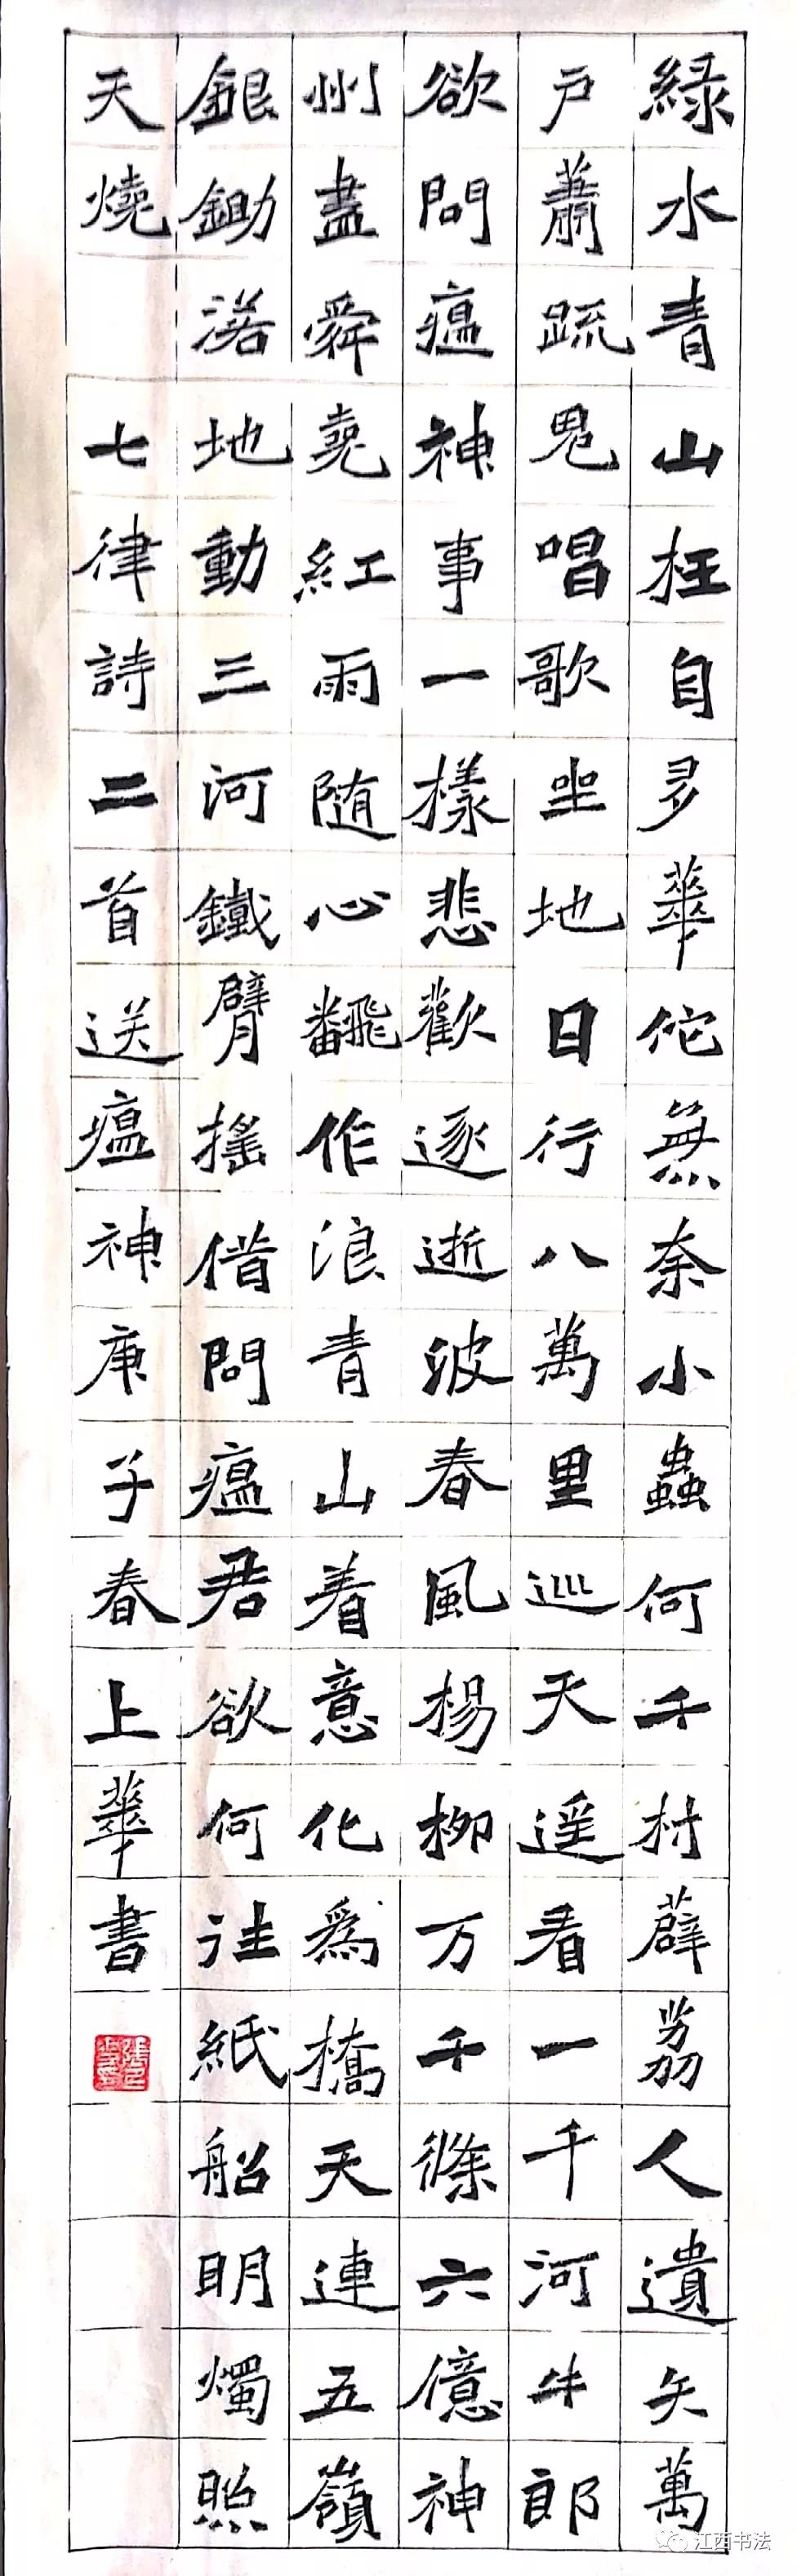 緑水青山枉自多華佗無奈小蟲何千村薜荔人遺矢萬
户蕭疏鬼唱歌坐地日行八萬里巡天遥看一千河牛郎
欲問瘟神事一樣悲歡逐逝波春風楊柳万千條六億神
州盡舜堯紅雨随心飜作浪青山着意化爲橋天連五嶺
銀鋤落地動三河鐵臂摇借問瘟君欲何往紙船明燭照
天燒 七律詩二首送瘟神庚子春上華書
江西书法